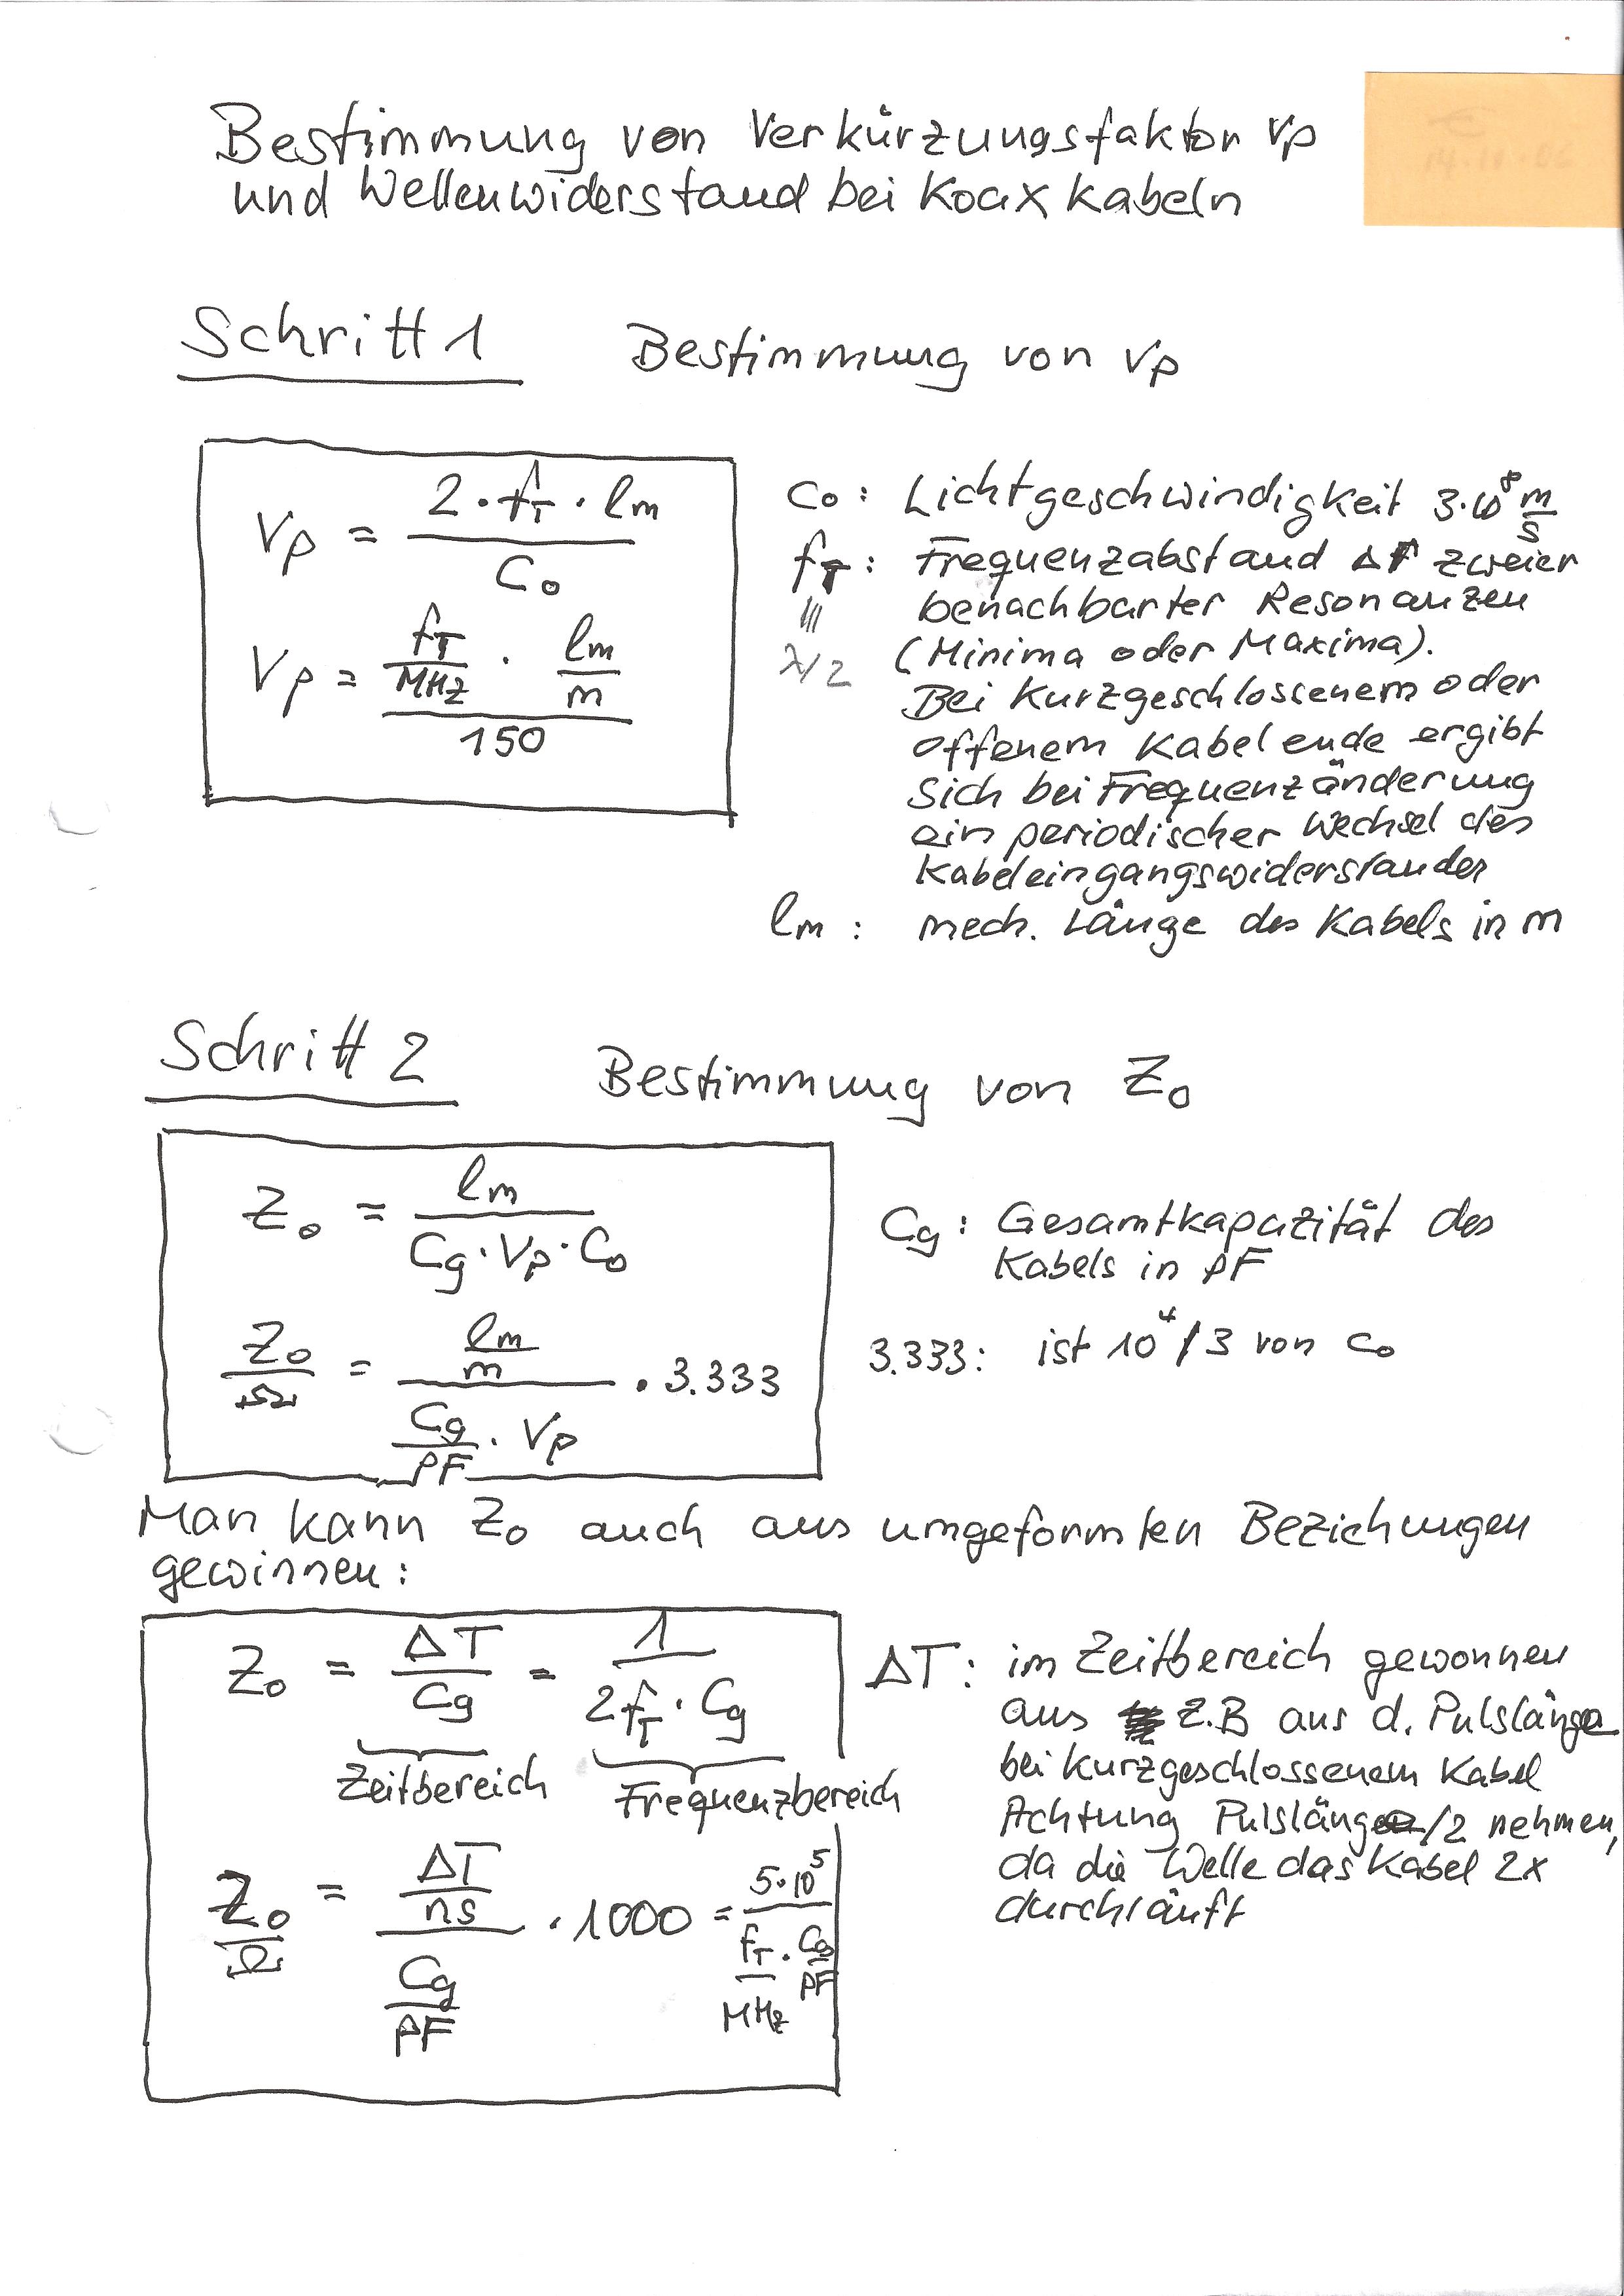 Bestimmung von Verkürzungsfaktor Vp
und Wellenwiderstand bei Koax Kabeln
Schritt 1 Bestimmung von Vp
Vp = (2 · fT · lm) / C0
Vp = (fT/MHz · lm/m) / 150
C0 : Lichtgeschwindigkeit 3·10⁸ m/s
fT : Frequenzabstand Δf zweier
≡ benachbarter Resonanzen
λ/2 (Minima oder Maxima).
Bei Kurzgeschlossenem oder
offenem Kabelende ergibt
sich bei Frequenzänderung
ein periodischer Wechsel des
Kabeleingangswiderstandes
lm : mech. Länge des Kabels in m
Schritt 2 Bestimmung von Z0
Z0 = lm / (Cg · Vp · C0)
Z0/Ω = (lm/m) / (Cg/pF · Vp) · 3.333
Cg : Gesamtkapazität des
Kabels in pF
3.333: ist 10⁴/3 von C0
Man kann Z0 auch aus umgeformten Beziehungen
gewinnen:
Z0 = ΔT / Cg = 1 / (2fT · Cg)
Zeitbereich Frequenzbereich
Z0/Ω = (ΔT/ns) / (Cg/pF) · 1000 = 5·10⁵ / (fT/MHz · Cg/pF)
ΔT: im Zeitbereich gewonnen
aus z.B aus d. Pulslänge
bei kurzgeschlossenem Kabel
Achtung Pulslänge/2 nehmen,
da die Welle das Kabel 2x
durchläuft